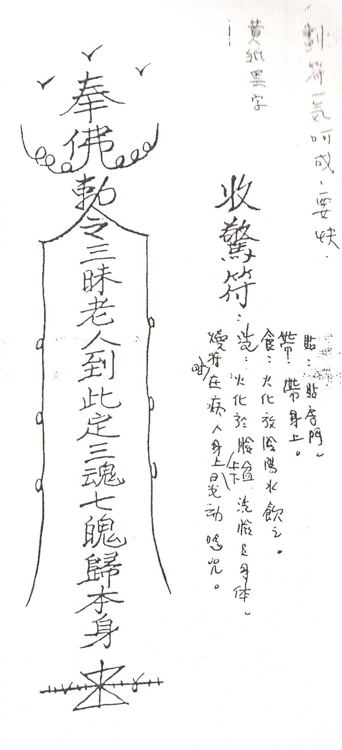 劃符一氣呵成，要快．
黃紙黑字
收驚符：
貼：貼房門。
帶：帶身上。
食：火化放陰陽水飲之。
洗：火化於臉盆下，洗臉及身体。
燒符在病人身上晃动唸咒。
奉
佛
勅
令三昧老人到此定三魂七魄歸本身